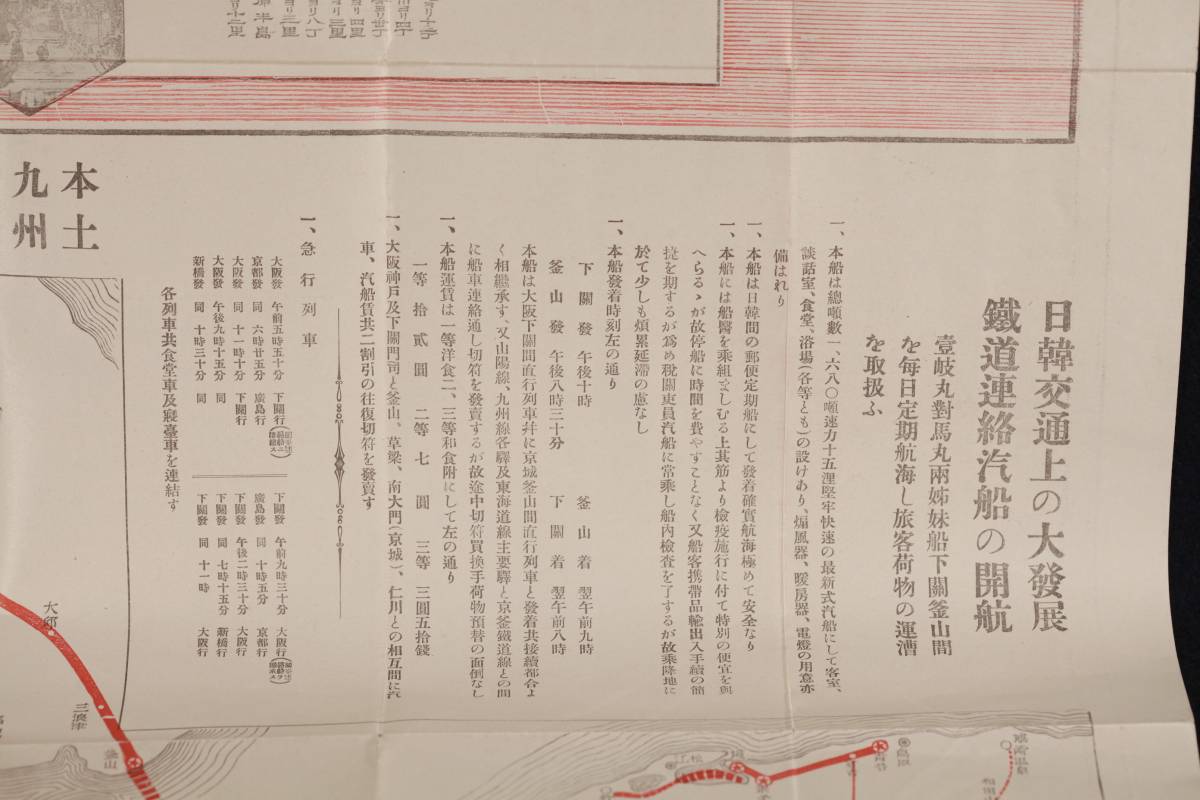 日韓交通上の大發展
鐵道連絡汽船の開航
壹岐丸對馬丸兩姊妹船下關釜山間
を每日定期航海し旅客荷物の運漕
を取扱ふ
一、本船は總噸數一、六八〇噸速力十五浬堅牢快速の最新式汽船にして客室、
談話室、食堂、浴場(各等とも)の設けあり、煽風器、暖房器、電燈の用意亦
備はれり
一、本船は日韓間の郵便定期船にして發着確實航海極めて安全なり
一、本船には船醫を乘組ましむる上其筋より檢疫施行に付て特別の便宜を與
へらるゝが故停船に時間を費やすことなく又船客携帶品輸出入手續の簡
捷を期するが爲め稅關吏員汽船に常乘し船內檢査を了するが故乘降地に
於て少しも煩累延滯の慮なし
一、本船發着時刻左の通り
下關發 午後十時 釜山着 翌午前九時
釜山發 午後八時三十分 下關着 翌午前八時
本船は大阪下關間直行列車幷に京城釜山間直行列車と發着共接續都合よ
く相繼承す、又山陽線、九州線各驛及東海道線主要驛と京釜鐵道線との間
に船車連絡通し切符を發賣するが故途中切符買換手荷物預替の面倒なし
一、本船運賃は一等洋食二、三等和食附にして左の通り
一等 拾貳圓 二等 七圓 三等 三圓五拾錢
一、大阪神戶及下關門司と釜山、草梁、南大門(京城)、仁川との相互間に汽
車、汽船賃共二割引の往復切符を發賣す
一、急行列車
大阪發 午前五時五十分 下關行 下關發 午前九時三十分 大阪行
京都發 同 六時廿五分 廣島行 廣島發 同 十時五分 京都行
大阪發 同 十一時十分 下關行 下關發 午後二時三十分 大阪行
大阪發 午後九時十五分 同 下關發 同 七時十五分 新橋行
新橋發 同 十時三十分 同 下關發 同 十一時 大阪行
各列車共食堂車及寢臺車を連結す
本土
九州
大邱
三浪津
釜山